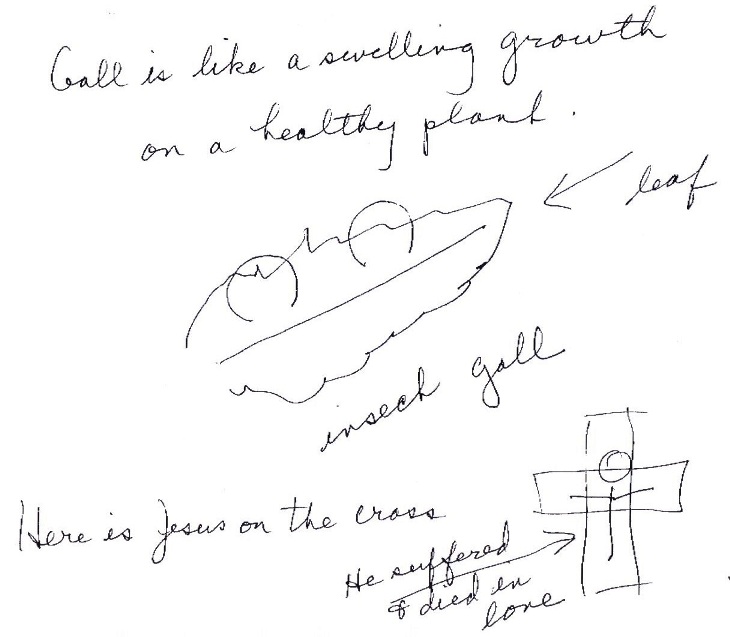 Gall is like a swelling growth
on a healthy plant.
leaf
insect gall
Here is Jesus on the cross
He suffered
& died in
love